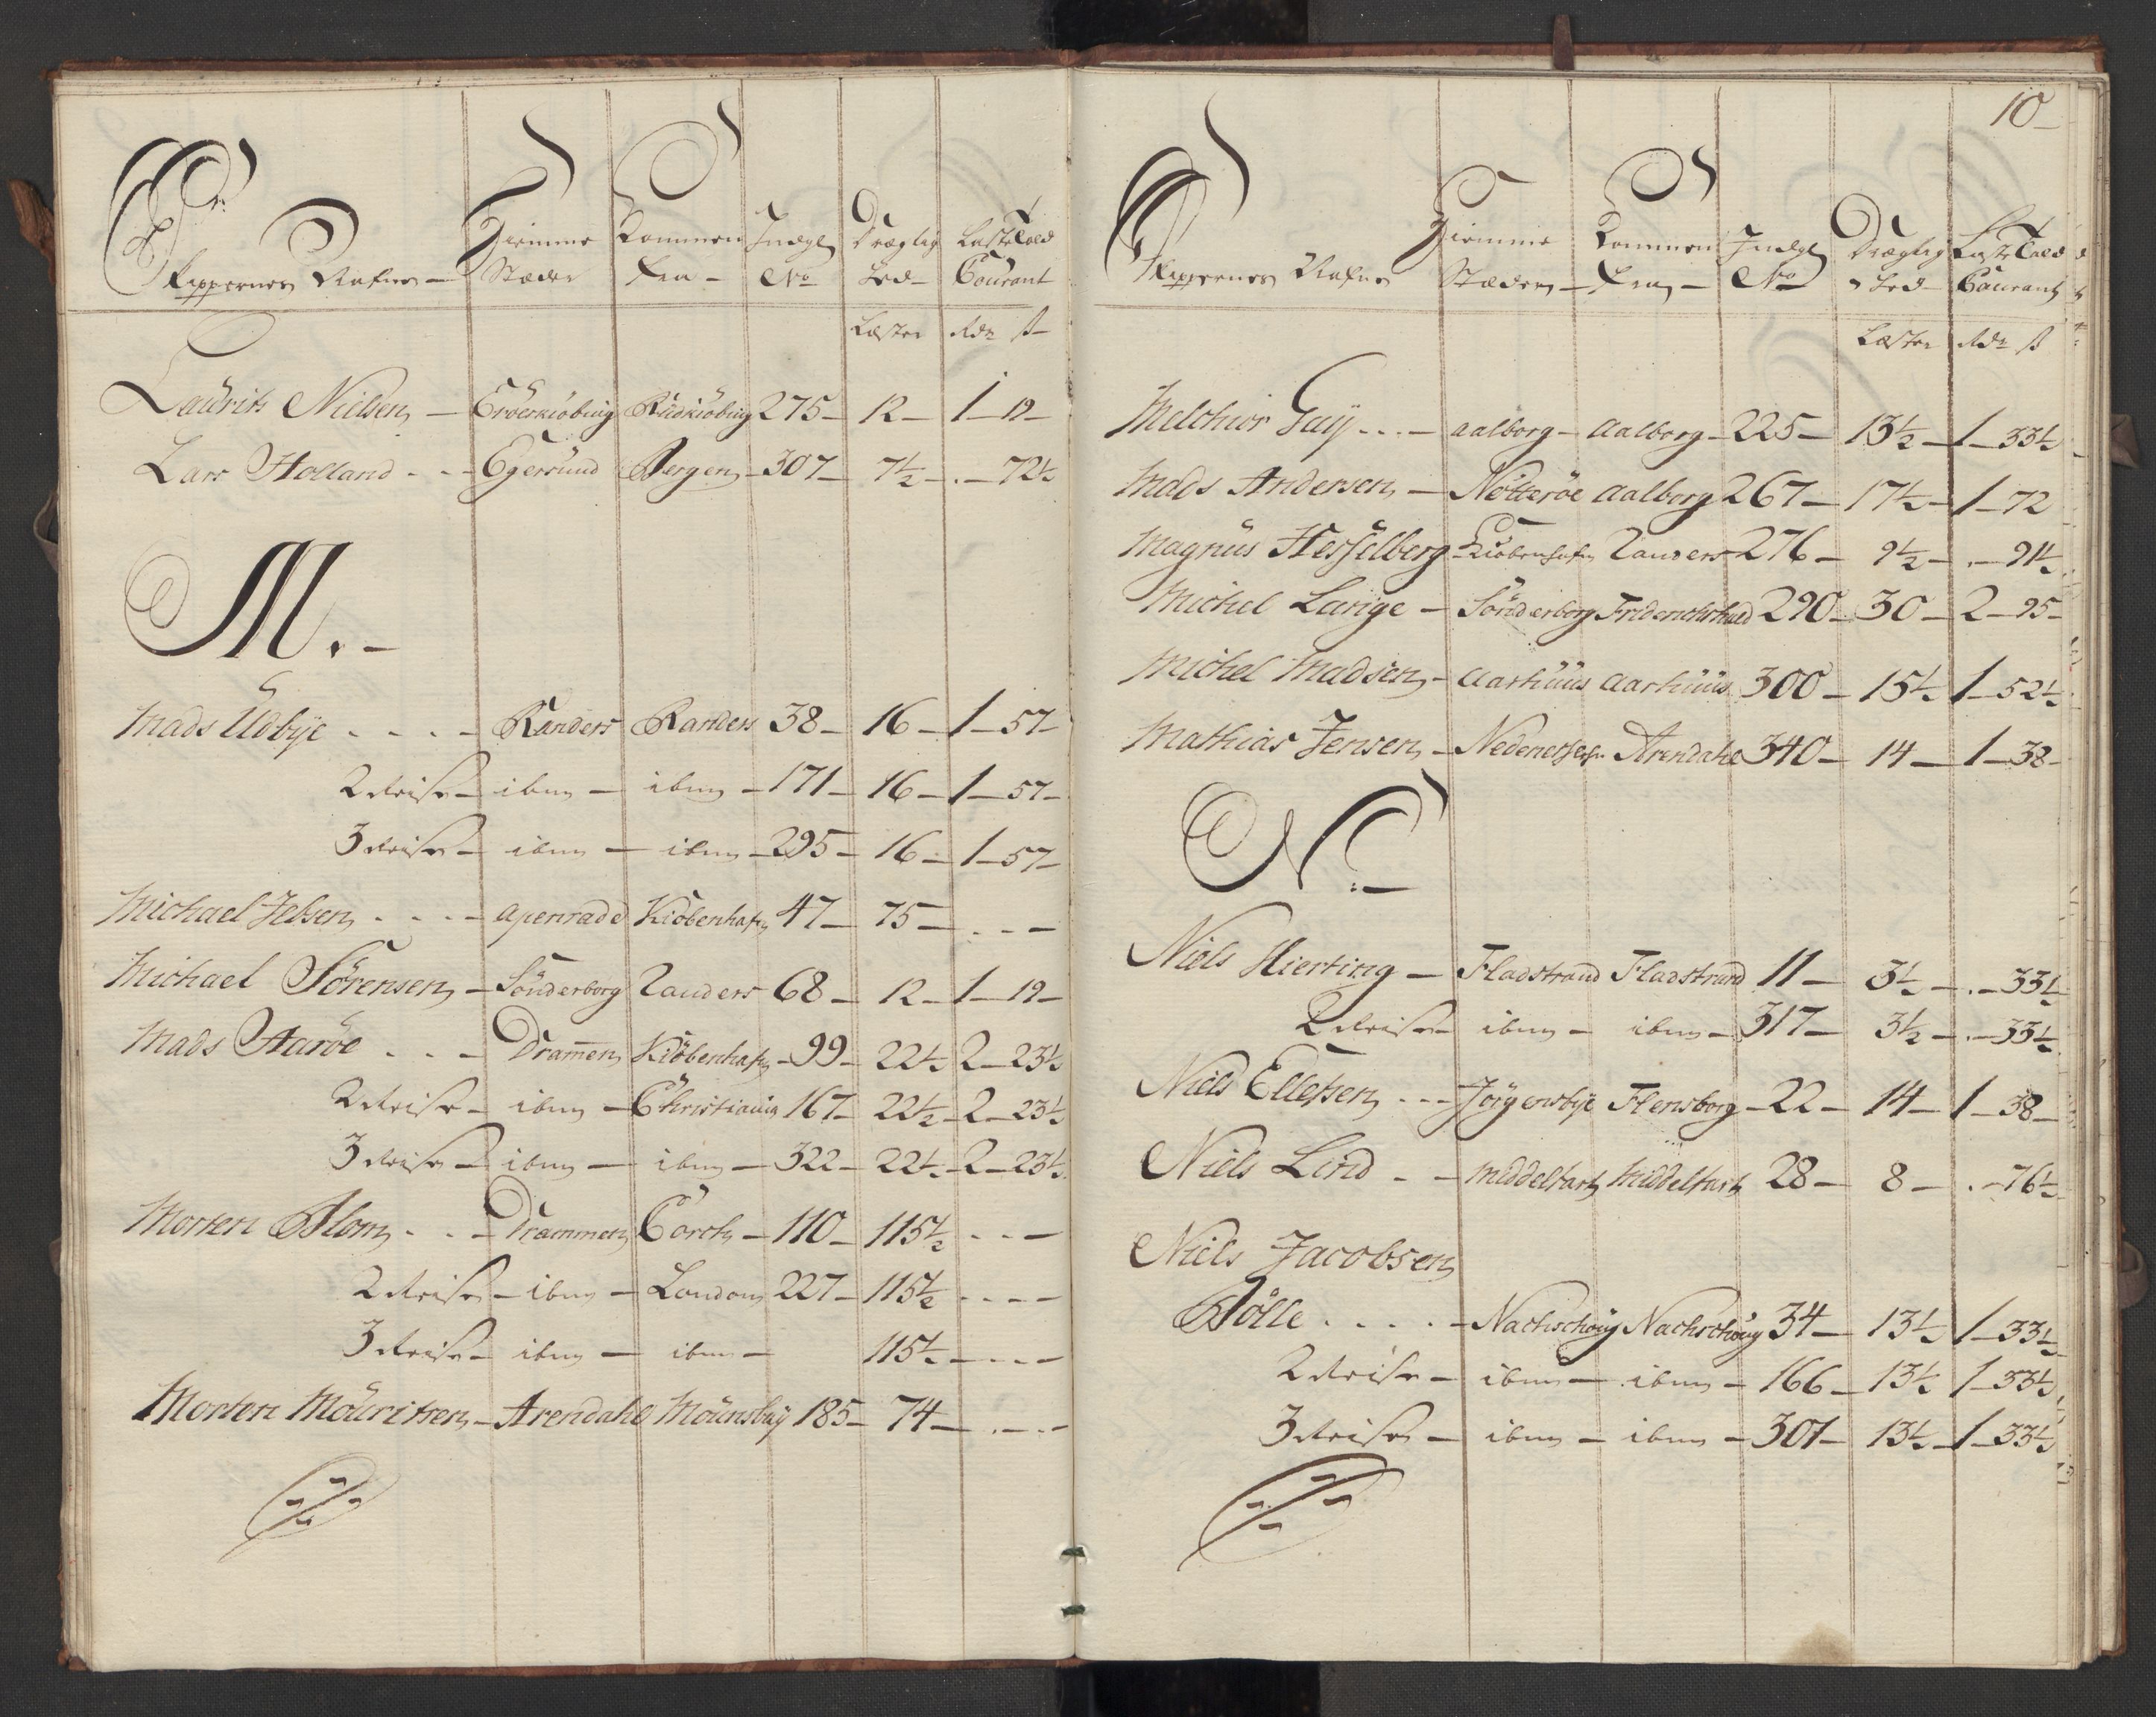 Skippernes Nafne - Hiemme Kommen Indgl Drægtig LasteTold
Stæder fra - No hed - Courant
Læster Rdr ß
Laürits Nielsen - Eröerkiöbing Rüdkiöbing 275 - 12 - 1 - 19 -
Lars Holland - - - Egersund Bergen - 307 - 7½ - . - 72½
M. -
Mads Udbÿe - - - - Randers Randers 38 - 16 - 1 - 57 -
2 Reise - ibm - ibm - 171 - 16 - 1 - 57 -
3 Reise - ibm - ibm - 295 - 16 - 1 - 57 -
Michael Jebsen - - - - Apenrade Kiöbenhafn 47 - 75 - . - -
Michael Sörensen - Sönderborg Randers 68 - 12 - 1 - 19 -
Mads Aaröe - - - Dramen Kiöbenhafn - 99 - 22½ 2 - 23½
2 Reise - ibm - Christiania 167 - 22½ - 2 - 23½
3 Reise - ibm - ibm - 322 - 22½ - 2 - 23½
Morten Blom - - - Drammen Corck - 110 - 115½ - - -
2 Reise - ibm - London 227 - 115½ - - - -
3 Reise - ibm - ibm - 115½ - - - -
Morten Möüritsen - Arendahl Möünsbüÿ 185 - 74 - . - . -
10 -
Skippernes Nafne Hiemme Kommen Indgl Drægtig LasteTold
Stæder - fra - No hed - Courant
Læster Rdr ß
Melchior Gaÿ - - - - Aalborg - Aalborg - 225 - 13½ - 1 - 33½
Mads Andersen - Nötteröe Aalborg 267 - 17½ - 1 - 72
Magnüs Hesselberg - Kiöbenhafn Randers 276 - 9½ - . - 91½
Michel Lange - Sönderborg Friderichshald 290 - 30 - 2 - 95 -
Michel Madsen - Aarhüüs Aarhüüs 300 - 15½ 1 - 52½
Mathias Jensen - Arendahl 340 - 14 - 1 - 38 -
N. -
Niels Hierting - Fladstrand Fladstrand 11 - 3½ - . - 33½
2 Reise - ibm - ibm - 317 - 3½ - . - 33½
Niels Ellefsen - - - Jörgensbÿe Flensborg - 22 - 14 - 1 - 38 -
Niels Lind - - - Middelfart Middelfart 28 - 8 - . - 76½
Niels Jacobsen
Bölle - - - - - Nachschöüg Nachschöüg 34 - 13½ 1 - 33½
2 Reise - ibm - ibm - 166 - 13½ 1 - 33½
3 Reise - ibm - ibm - 301 - 13½ - 1 - 33½